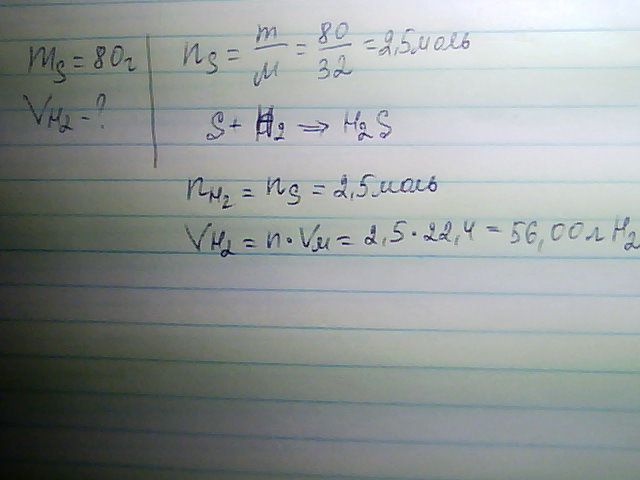 m_S = 80г
V_H₂ - ?
n_S = m/M = 80/32 = 2,5 моль
S + H₂ ⇒ H₂S
n_H₂ = n_S = 2,5 моль
V_H₂ = n · V_M = 2,5 · 22,4 = 56,00 л H₂